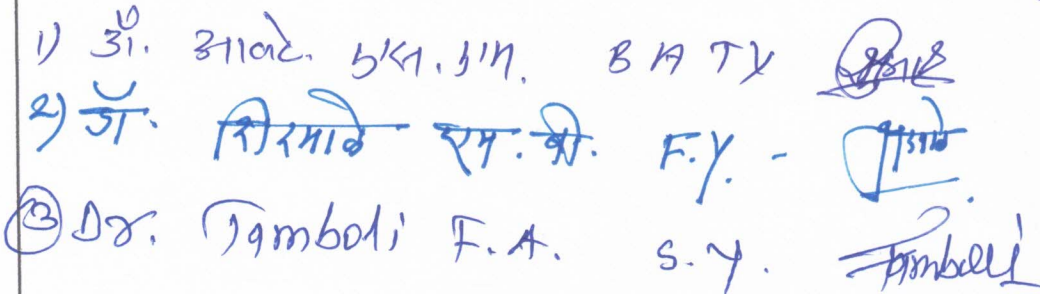 1) डॉ. आवटे. एस. एम. B A T Y
२) डॉ. शिरमाळे एम. बी. F.Y. -
③ Dr. Tamboli F.A. S.Y. Tamboli